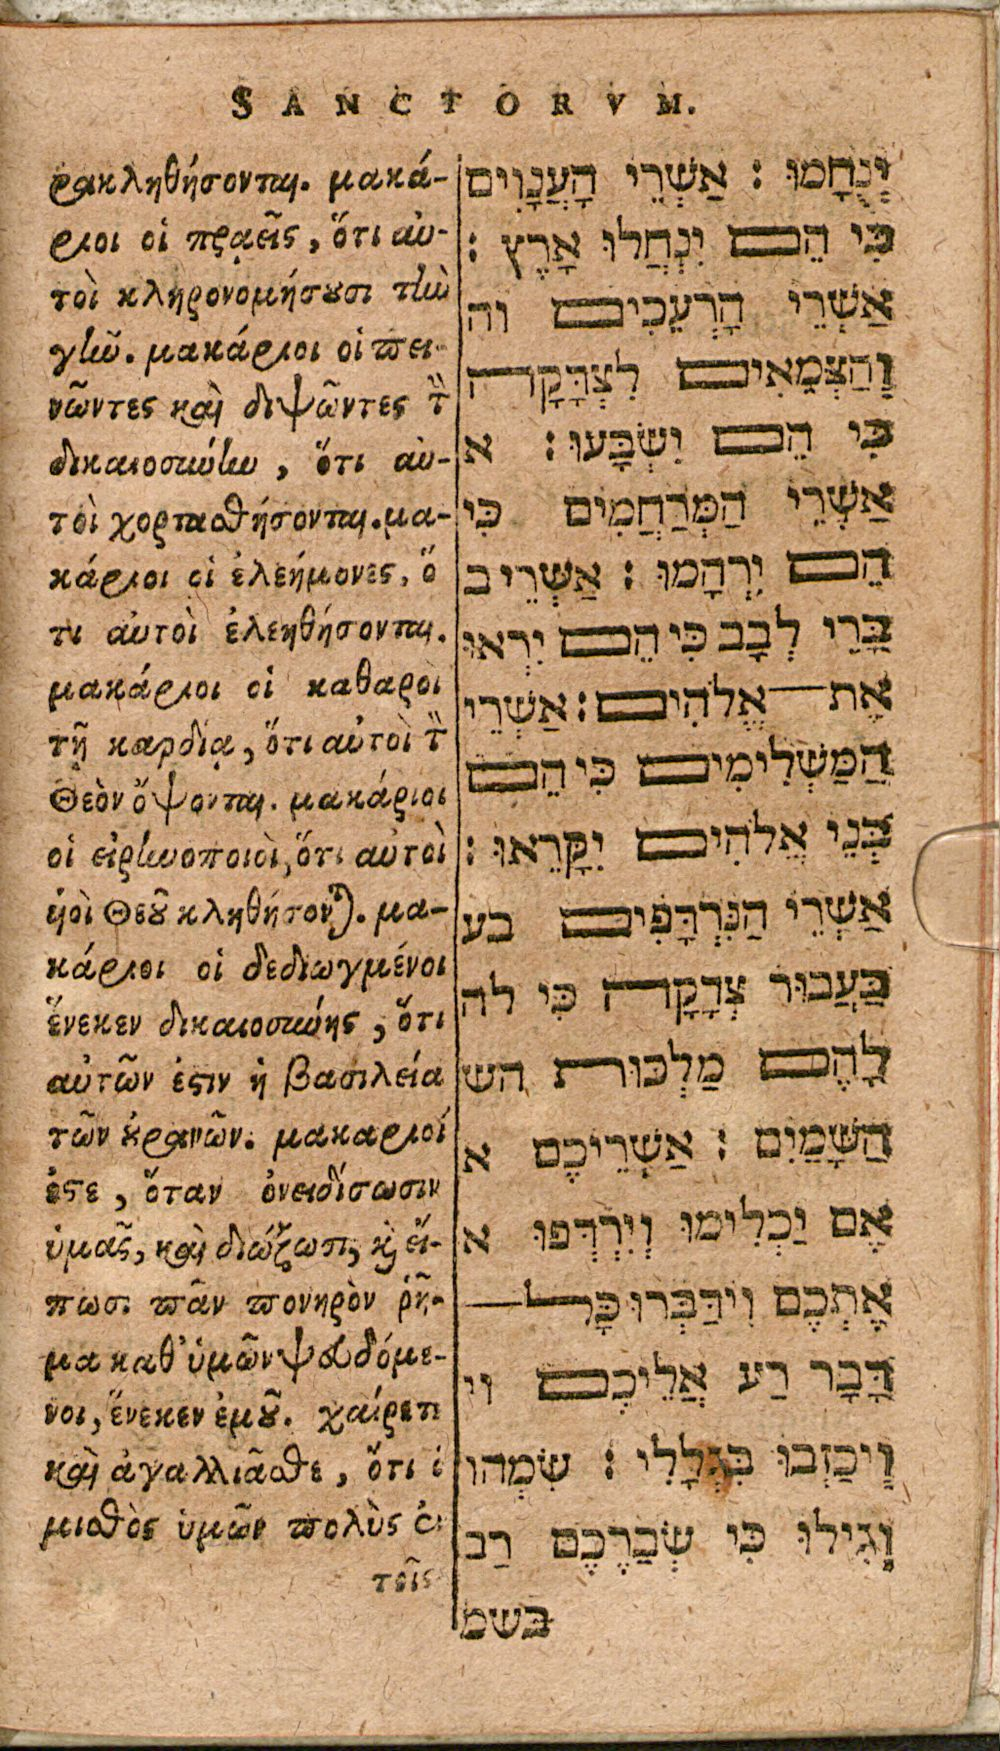 SANCTORVM.
ρακληθήσονται. μακά-
ριοι οἱ πρᾳεῖς, ὅτι αὐ-
τοὶ κληρονομήσουσι τὴν
γῆν. μακάριοι οἱ πει-
νῶντες καὶ διψῶντες τ
δικαιοσύνην, ὅτι αὐ-
τοὶ χορτασθήσονται. μα-
κάριοι οἱ ἐλεήμονες, ὅ
τι αὐτοὶ ἐλεηθήσονται.
μακάριοι οἱ καθαροὶ
τῇ καρδίᾳ, ὅτι αὐτοὶ τ
Θεὸν ὄψονται. μακάριοι
οἱ εἰρηνοποιοὶ, ὅτι αὐτοὶ
ὑοὶ Θεοῦ κληθήσον). μα-
κάριοι οἱ δεδιωγμένοι
ἕνεκεν δικαιοσύνης, ὅτι
αὐτῶν ἐστιν ἡ βασιλεία
τῶν οὐρανῶν. μακαριοί
ἐστε, ὅταν ὀνειδίσωσιν
ὑμᾶς, καὶ διώξωσι, καὶ εἴ-
πωσι πᾶν πονηρὸν ῥῆ-
μα καθ' ὑμῶν ψευδόμε-
νοι, ἕνεκεν ἐμοῦ. χαίρετε
καὶ ἀγαλλιᾶσθε, ὅτι ὁ
μισθὸς ὑμῶν πολὺς ἐν
τοῖς
יְנֻחָמוּ : אַשְׁרֵי הָעֲנָוִים
כִּי הֵם יִנְחֲלוּ אָרֶץ :
אַשְׁרֵי הָרְעֵבִים וה
וְהַצְּמֵאִים לִצְדָקָה
כִּי הֵם יִשְׂבָּעוּ : א
אַשְׁרֵי הַמְּרַחֲמִים כִּי
הֵם יְרֻחָמוּ : אַשְׁרֵי ב
בָּרֵי לְבָב כִּי הֵם יִרְאוּ
אֶת אֱלֹהִים : אַשְׁרֵי
הַמַּשְׁלִימִים כִּי הֵם
בְּנֵי אֱלֹהִים יִקָּרֵאוּ :
אַשְׁרֵי הַנִּרְדָּפִים בע
בַּעֲבוּר צְדָקָה כִּי לה
לָהֶם מַלְכוּת הש
הַשָּׁמַיִם : אַשְׁרֵיכֶם א
אִם יַכְלִימוּ וְיִרְדְּפוּ א
אֶתְכֶם וִידַבְּרוּ כָּל
דָּבָר רַע עֲלֵיכֶם וי
וִיכַזְּבוּ בִּגְלָלִי : שִׂמְחוּ
וְגִילוּ כִּי שְׂכַרְכֶם רַב
בּשמ